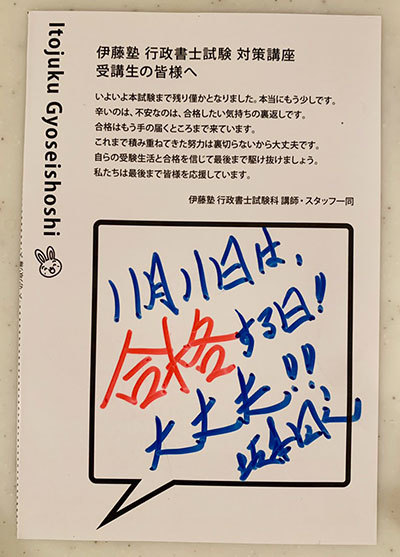 Itojuku Gyoseishoshi
伊藤塾 行政書士試験 対策講座
受講生の皆様へ
いよいよ本試験まで残り僅かとなりました。本当にもう少しです。
辛いのは、不安なのは、合格したい気持ちの裏返しです。
合格はもう手の届くところまで来ています。
これまで積み重ねてきた努力は裏切らないから大丈夫です。
自らの受験生活と合格を信じて最後まで駆け抜けましょう。
私たちは最後まで皆様を応援しています。
伊藤塾 行政書士試験科 講師・スタッフ一同
11月11日は、
合格する日!
大丈夫!!